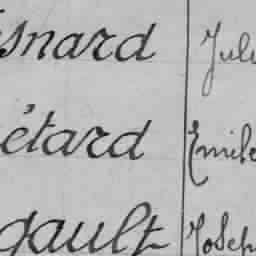 snard Juli
étard Emile
gault Joseph